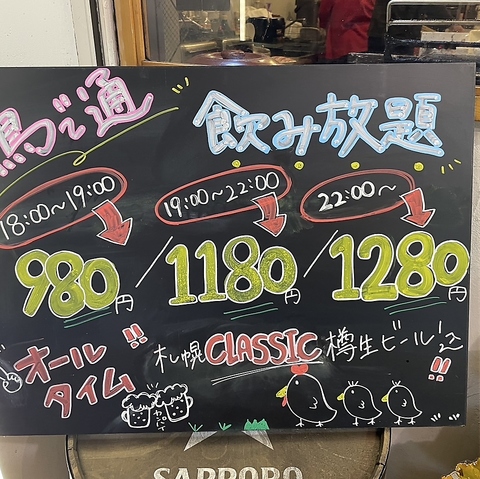 鳥で通 飲み放題
18:00〜19:00 19:00〜22:00 22:00〜
980円/1180円/1280円
オールタイム!! 札幌CLASSIC 樽生ビール!!
カンパイ
SAPPORO